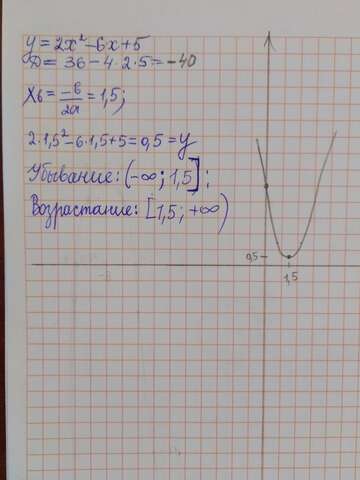 y = 2x² - 6x + 5
D = 36 - 4 · 2 · 5 = -40
Xb = -b/2a = 1,5;
2 · 1,5² - 6 · 1,5 + 5 = 0,5 = y
Убывание: (-∞; 1,5];
Возрастание: [1,5; +∞)
0,5
1,5